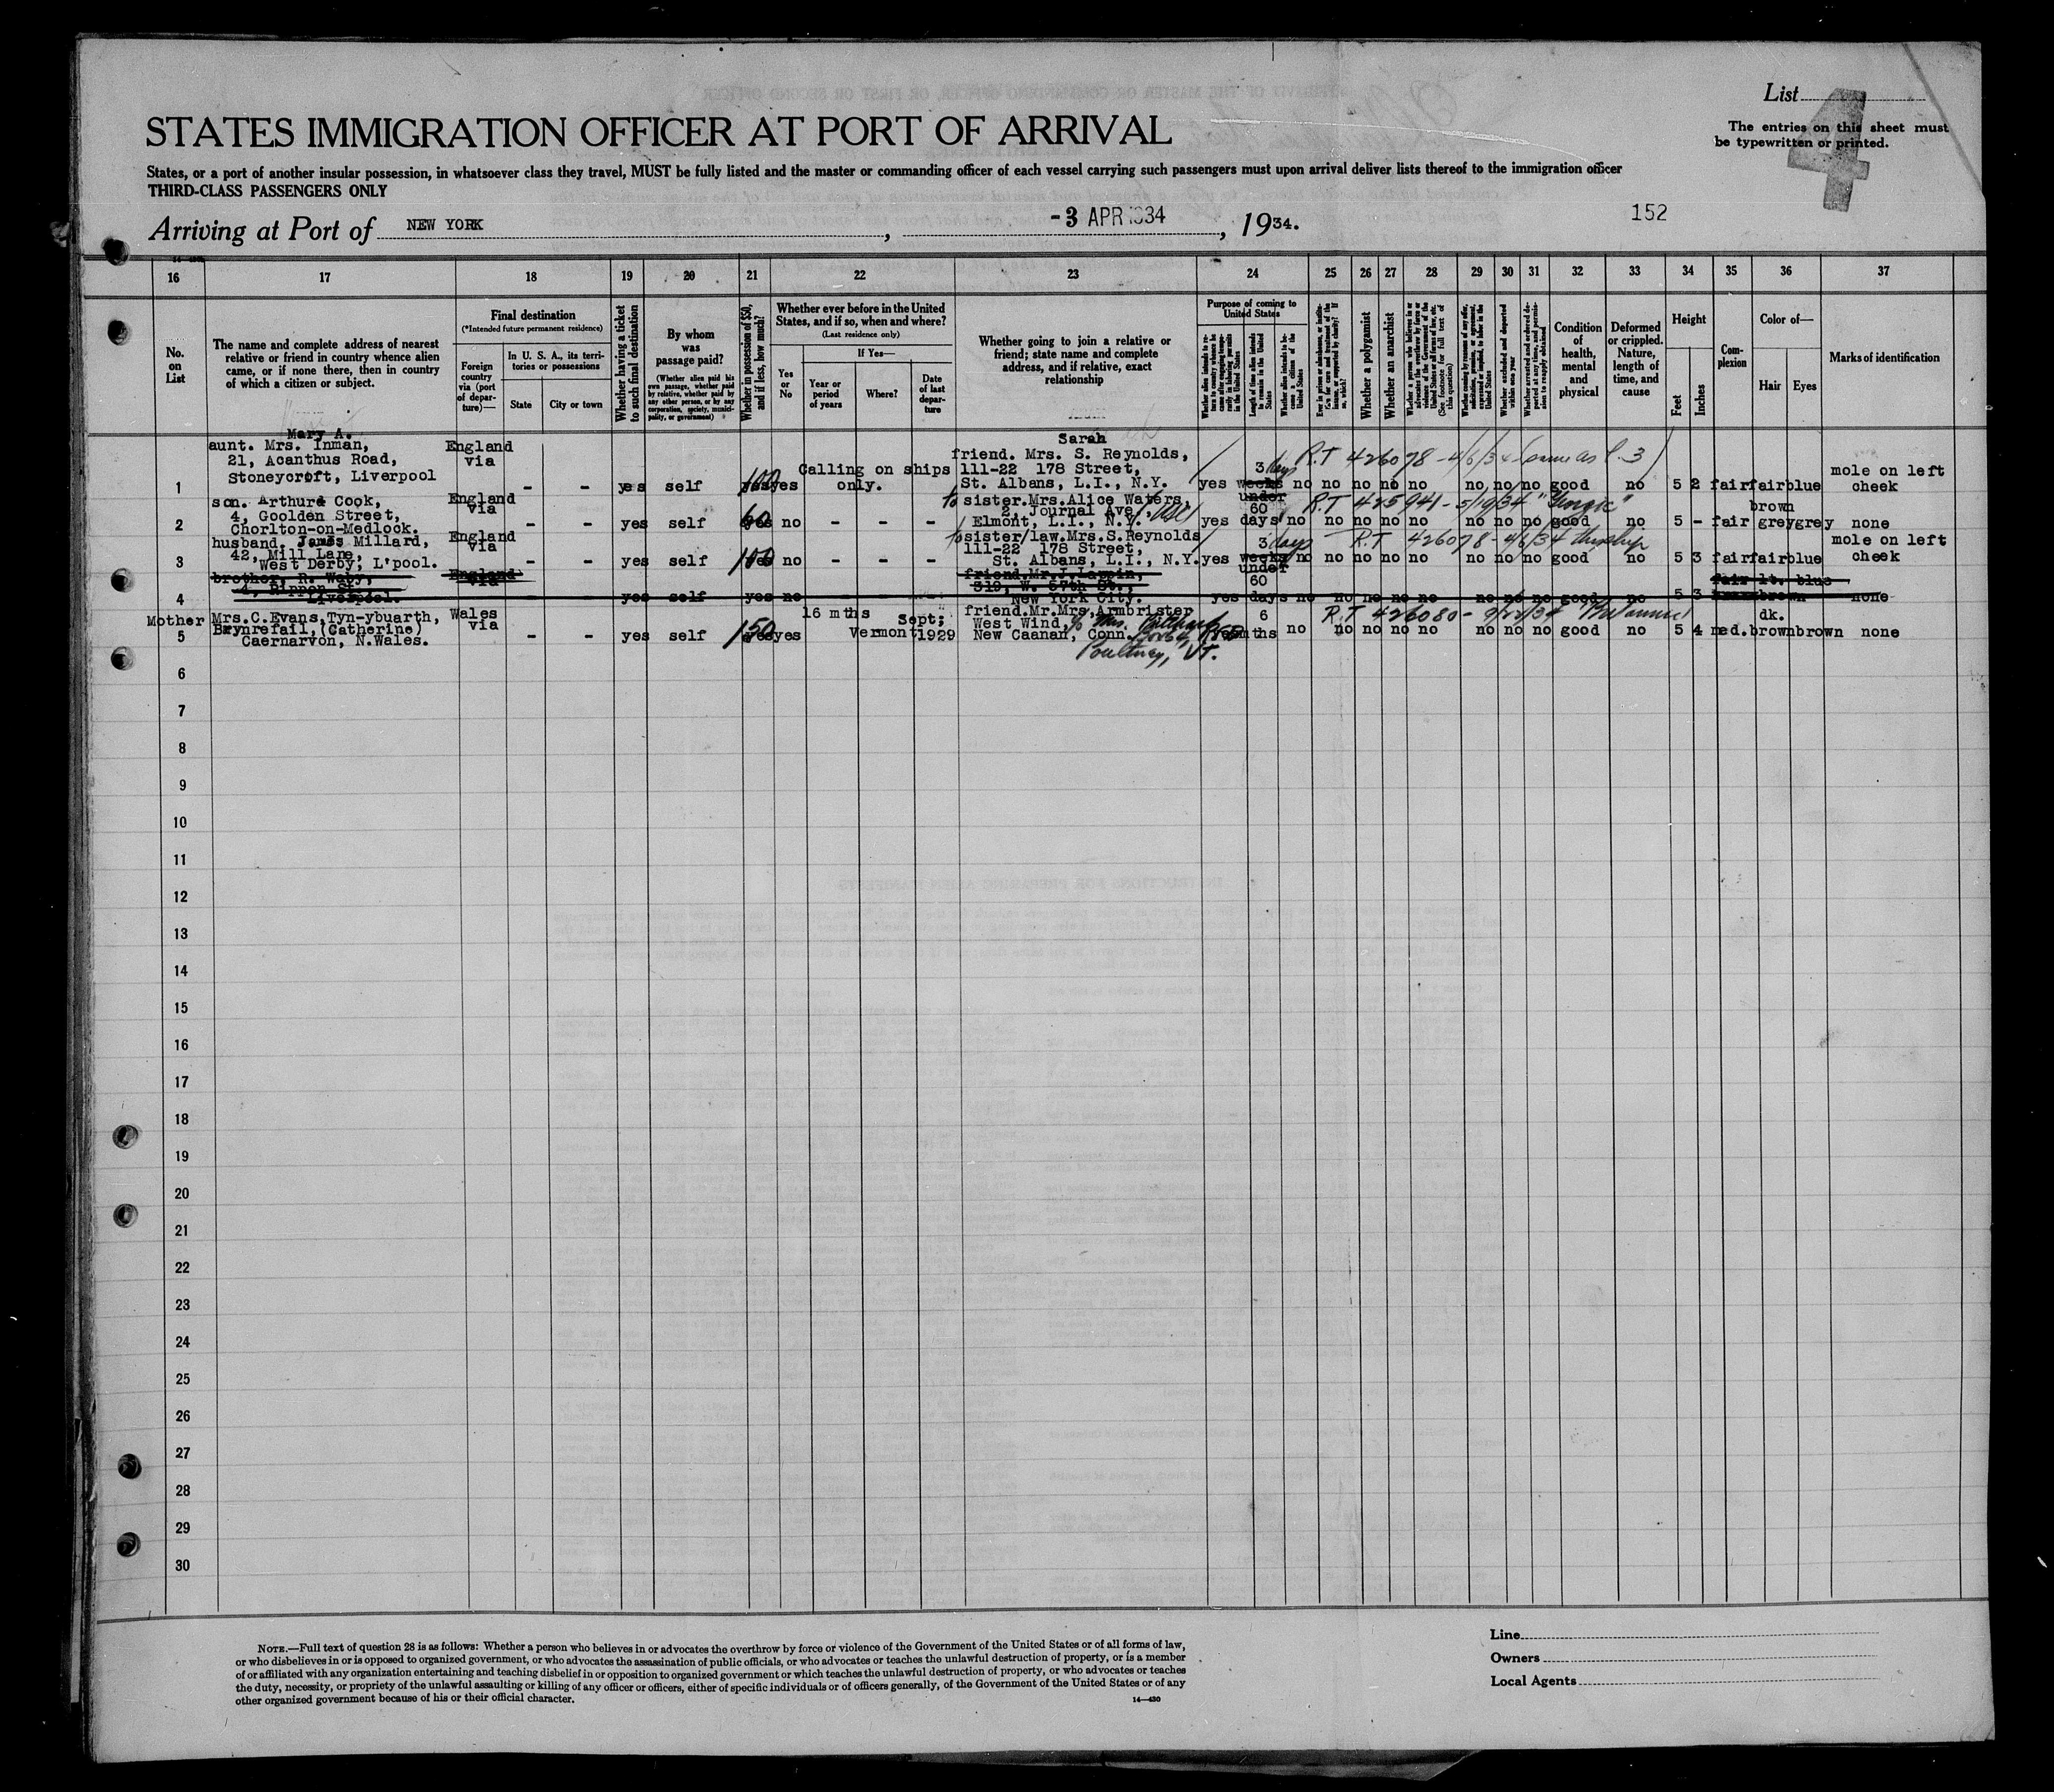 List
4
The entries on this sheet must
be typewritten or printed.
STATES IMMIGRATION OFFICER AT PORT OF ARRIVAL
States, or a port of another insular possession, in whatsoever class they travel, MUST be fully listed and the master or commanding officer of each vessel carrying such passengers must upon arrival deliver lists thereof to the immigration officer
THIRD-CLASS PASSENGERS ONLY
Arriving at Port of NEW YORK, -3 APR 1934, 1934.
152
16 17 18 19 20 21 22 23 24 25 26 27 28 29 30 31 32 33 34 35 36 37
No. on List
The name and complete address of nearest
relative or friend in country whence alien
came, or if none there, then in country
of which a citizen or subject.
Final destination
(*Intended future permanent residence)
Foreign country via (port of departure)—
In U. S. A., its territories or possessions
State
City or town
Whether having a ticket to such final destination
By whom was passage paid?
(Whether alien paid his own passage, whether paid by relative, whether paid by any other person, or by any corporation, society, municipality, or government)
Whether in possession of $50, and if less, how much?
Whether ever before in the United
States, and if so, when and where?
(Last residence only)
Yes or No
If Yes—
Year or period of years
Where?
Date of last departure
Whether going to join a relative or
friend; state name and complete
address, and if relative, exact
relationship
Purpose of coming to United States
Length of time alien intends to remain in the United States
Whether alien intends to become a citizen of the United States
Whether a polygamist
Whether an anarchist
Condition of health, mental and physical
Deformed or crippled. Nature, length of time, and cause
Height
Feet
Inches
Complexion
Color of—
Hair
Eyes
Marks of identification
Mary A.
aunt. Mrs. Inman,
21, Acanthus Road,
Stoneycroft, Liverpool
England via
1 - - yes self 100 yes
Calling on ships only.
Sarah
friend. Mrs. S. Reynolds,
111-22 178 Street,
St. Albans, L.I., N.Y.
yes 3 weeks days no no no no no no no no good no 5 2 fair fair blue
R.T 426078 - 4/6/34 same as l. 3
mole on left
cheek
son. Arthur Cook,
4, Goolden Street,
Chorlton-on-Medlock.
England via
2 - - yes self 60 no - - -
to sister. Mrs. Alice Waters,
2, Journal Ave,
Elmont, L.I., N.Y.
yes under 60 days no no no no no no no no good no 5 - fair brown grey grey none
R.T 425941 - 5/19/34 "Georgic"
husband. James Millard,
42, Mill Lane,
West Derby, L'pool.
England via
3 - - yes self 100 no - - -
to sister/law. Mrs. S. Reynolds
111-22 178 Street,
St. Albans, L.I., N.Y.
yes 3 weeks days no no no no no no no no good no 5 3 fair fair blue
R.T 426078 - 4/6/34 this ship
mole on left
cheek
brother, R. Waby,
4, Rippon St.,
Liverpool.
England via
4 - - yes self yes no
friend. Mr. J. Lappin,
319, W. 57th St.,
New York City.
yes under 60 days no no no no no no no no good no 5 3 fair lt. brown blue none
Mother Mrs. C. Evans, Tyn-ybuarth,
Brynrefail, (Catherine)
Caernarvon, N.Wales.
Wales via
5 - - yes self 150 yes
16 mths Vermont Sept; 1929
friend. Mr. Mrs. Armbrister
West Wind, c/o Mrs.
New Caanan, Conn.
Poultney, VT.
yes 6 mths no no no no no no no no good no 5 4 med. dk. brown brown none
R.T 426080
6
7
8
9
10
11
12
13
14
15
16
17
18
19
20
21
22
23
24
25
26
27
28
29
30
NOTE.—Full text of question 28 is as follows: Whether a person who believes in or advocates the overthrow by force or violence of the Government of the United States or of all forms of law,
or who disbelieves in or is opposed to organized government, or who advocates the assassination of public officials, or who advocates or teaches the unlawful destruction of property, or is a member
of or affiliated with any organization entertaining and teaching disbelief in or opposition to organized government or which teaches the unlawful destruction of property, or who advocates or teaches
the duty, necessity, or propriety of the unlawful assaulting or killing of any officer or officers, either of specific individuals or of officers generally, of the Government of the United States or of any
other organized government because of his or their official character.
14—430
Line
Owners
Local Agents